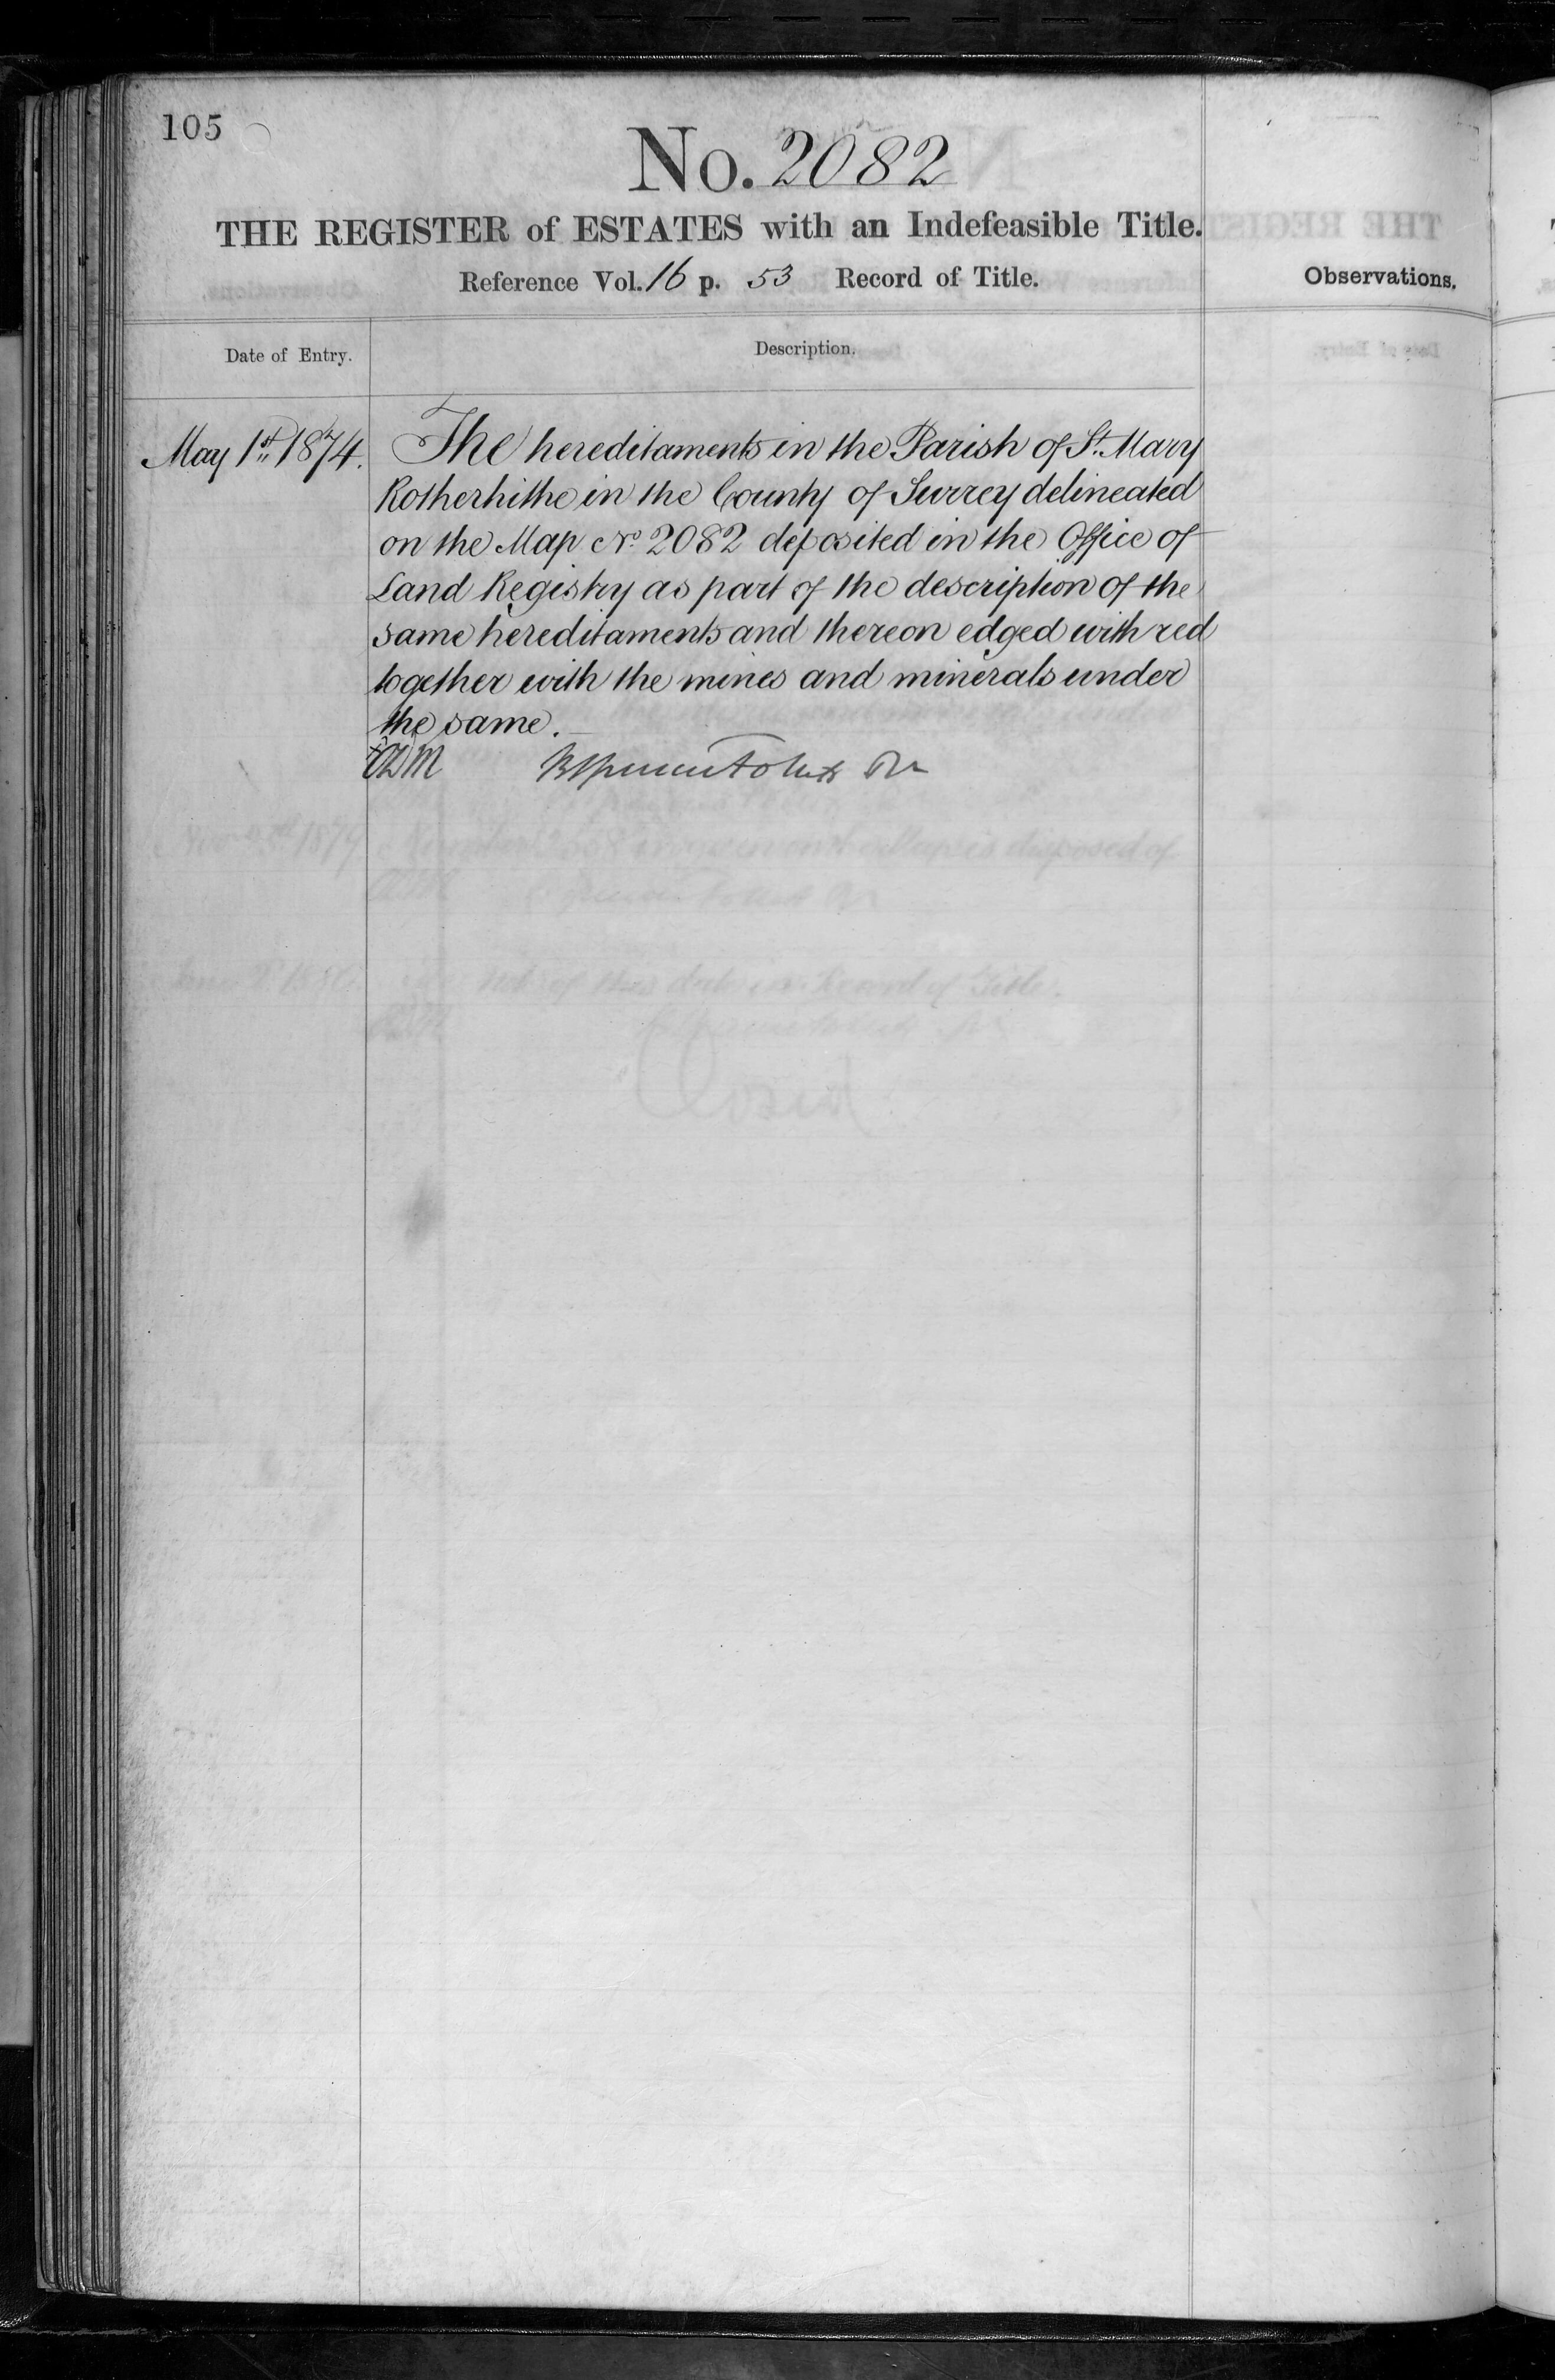 105
No. 2082
THE REGISTER of ESTATES with an Indefeasible Title.
Reference Vol. 16 p. 53 Record of Title.
Observations.
Date of Entry.
Description.
May 1st 1874.
The hereditaments in the Parish of St. Mary
Rotherhithe in the County of Surrey delineated
on the Map No. 2082 deposited in the Office of
Land Registry as part of the description of the
same hereditaments and thereon edged with red
together with the mines and minerals under
the same.